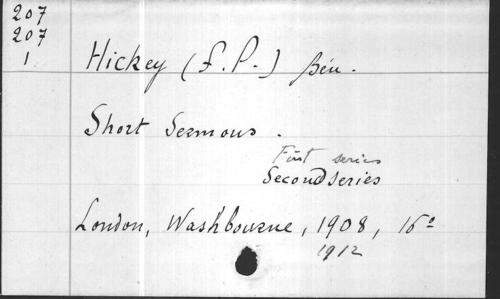 207
207
1
Hickey (F. P.-) Bén.
Short Sermons.
First series
Second series
London, Washbourne, 1908, 16º
1912